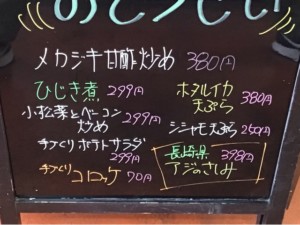 メカジキ甘酢炒め 380円
ひじき煮 299円
小松菜とベーコン
炒め 299円
手づくりポテトサラダ
299円
手づくり コロッケ 70円
ホタルイカ
天ぷら 380円
シシャモ天ぷら 250円
長崎県 398円
アジのさしみ